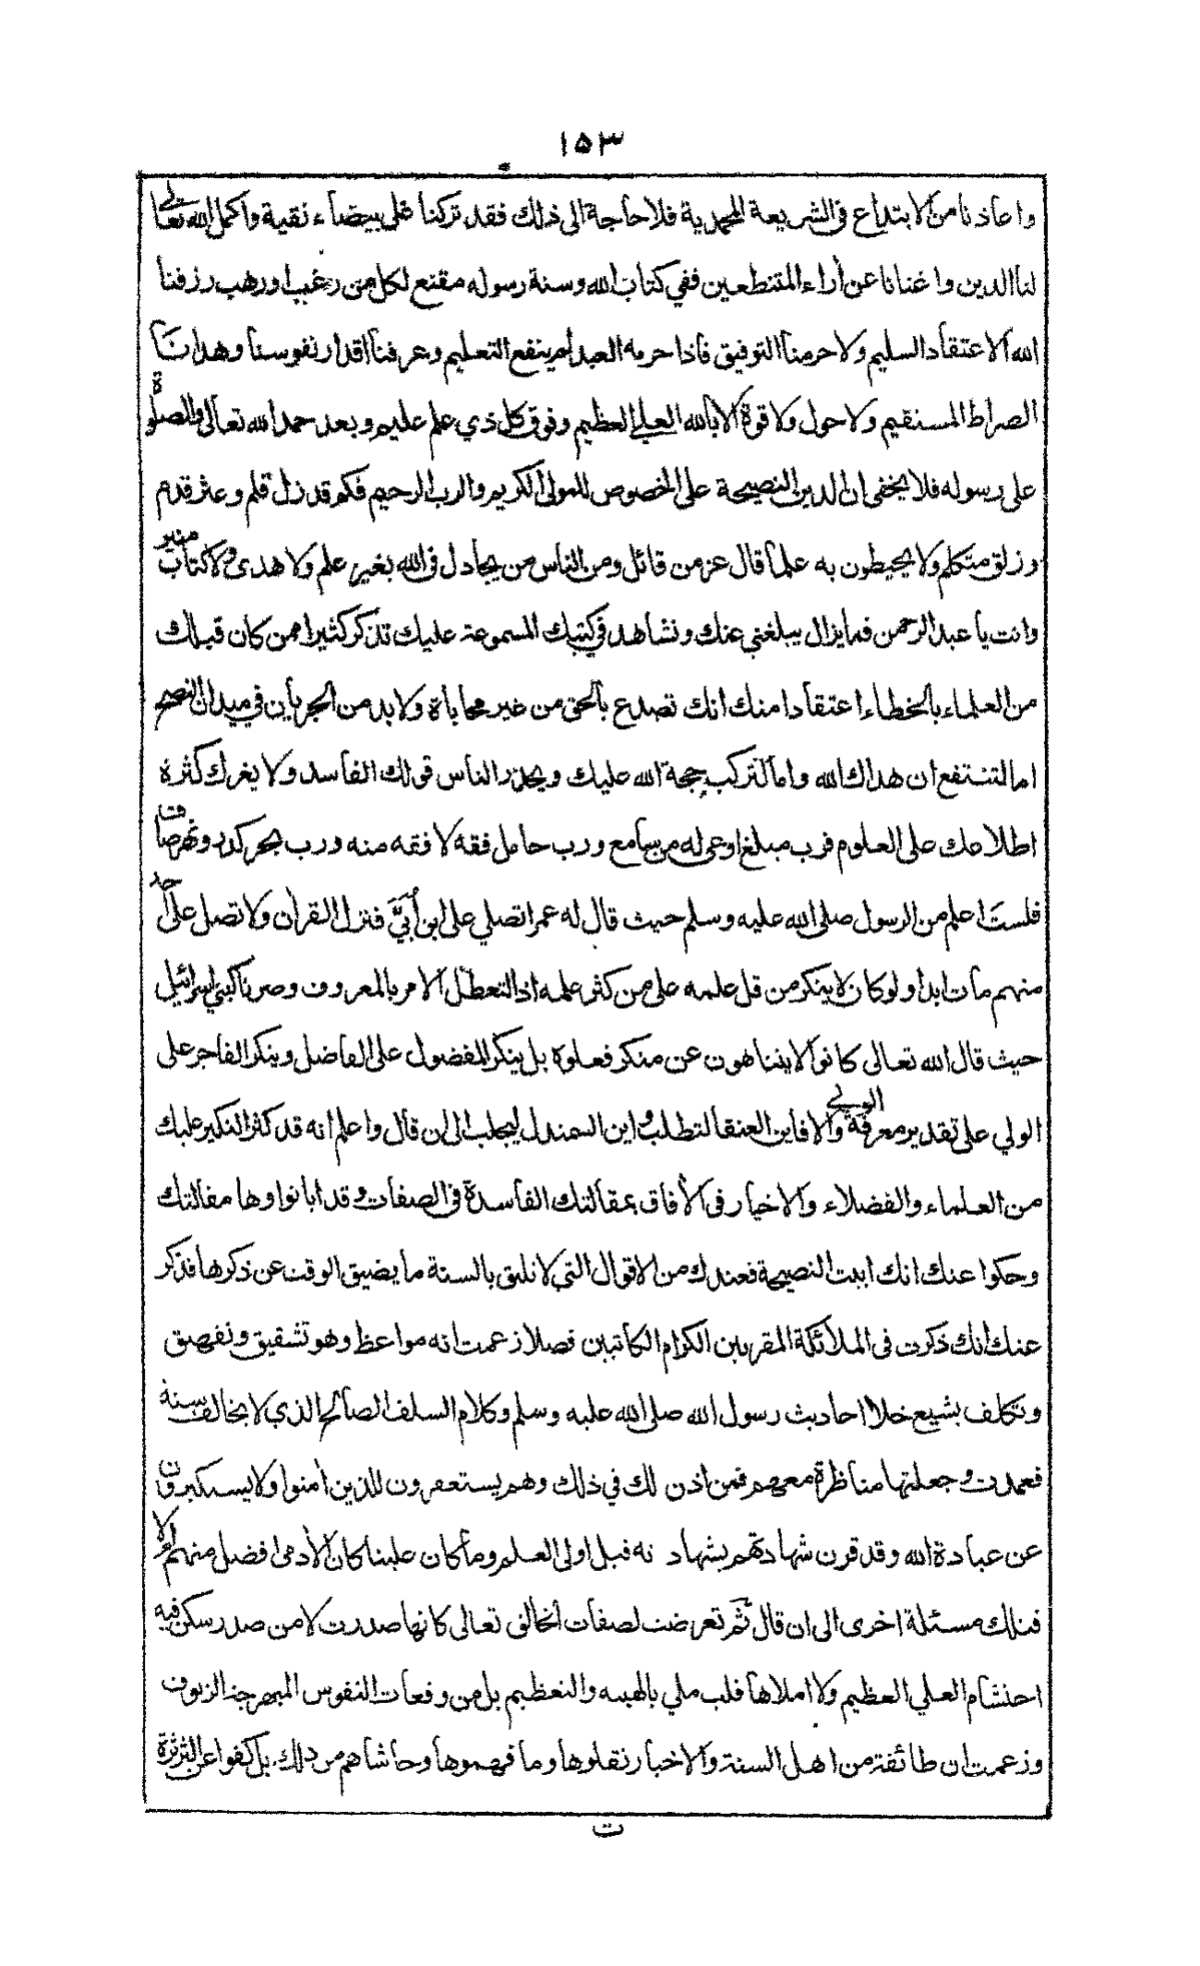 ١٥٣
واعاذنا من الابتداع في الشريعة المحمدية فلا حاجة الى ذلك فقد تركنا على بيضاء نقية واكمل الله تعالى
لنا الدين واغنانا عن أراء المتنطعين ففي كتاب الله وسنة رسوله مقنع لكل من رغب او رهب رزقنا
الله الاعتقاد السليم ولا حرمنا التوفيق فاذا حرمه العبد لم ينفع التعليم وعرفنا اقدار نفوسنا وهدانا
الصراط المستقيم ولا حول ولا قوة الا بالله العلي العظيم وفوق كل ذي علم عليم وبعد حمد الله تعالى والصلوة
على رسوله فلا يخفى ان الدين النصيحة على الخصوص للمولى الكريم والرب الرحيم فكم قد زل قلم وعثر قدم
وزلق متكلم ولا يحيطون به علما قال عز من قائل ومن الناس من يجادل في الله بغير علم ولا هدى ولا كتاب منير
وانت يا عبد الرحمن فما يزال يبلغني عنك ونشاهد في كتبك المسموعة عليك تذكر كثيرا ممن كان قبلك
من العلماء بالخطاء اعتقادا منك انك تصدع بالحق من غير محاباة ولا بد من الجريان في ميدان النصح
اما لتنتفع ان هداك الله واما لتركب حجة الله عليك ويحذر الناس قولك الفاسد ولا يغرك كثرة
اطلاعك على العلوم فرب مبلغ اوعى له من سامع ورب حامل فقه لا فقه منه ورب بحر كدر ونهر صاف
فلست اعلم من الرسول صلى الله عليه وسلم حيث قال له عمر اتصلي على ابن أُبَيّ فنزل القرأن ولا تصل على احد
منهم مات ابدا ولو كان لا ينكر من قل علمه على من كثر علمه اذا لتعطل الامر بالمعروف وصرنا كبني اسرائيل
حيث قال الله تعالى كانوا لا يتناهون عن منكر فعلوه بل ينكر المفضول على الفاضل وينكر الفاجر على
الولي على تقدير معرفة الولي والا فاين العنقا لتطلب واين السمندل ليجلب الى ان قال واعلم انه قد كثر النكير عليك
من العلماء والفضلاء والاخيار في الأفاق بمقالتك الفاسدة في الصفات وقد ابانوا وها مقالتك
وحكوا عنك انك ابيت النصيحة فعندك من الاقوال التي لا تليق بالسنة ما يضيق الوقت عن ذكرها فذكر
عنك انك ذكرت في الملائكة المقربين الكرام الكاتبين فصلا زعمت انه مواعظ وهو تشقيق وتفهيق
وتكلف بشيع خلا احاديث رسول الله صلى الله عليه وسلم وكلام السلف الصالح الذي لا يخالف سنة
فعمدت وجعلتها مناظرة معهم فمن اذن لك في ذلك وهم يستغفرون للذين أمنوا ولا يستكبرون
عن عبادة الله وقد قرن شهادتهم بشهادته قبل اولى العلم وما كان علينا كان الأدمى افضل منهم ام لا
فتلك مسئلة اخرى الى ان قال ثم تعرضت لصفات الخالق تعالى كانها صدرت لا من صدر سكن فيه
احتشام العلي العظيم ولا املاها قلب ملي بالهيبه والتعظيم بل من وقعات النفوس المبهرجة الزيوف
وزعمت ان طائفة من اهل السنة والاخبار نقلوها وما فهموها وحاشاهم من ذلك بل كفوا عن الثرثرة
ت